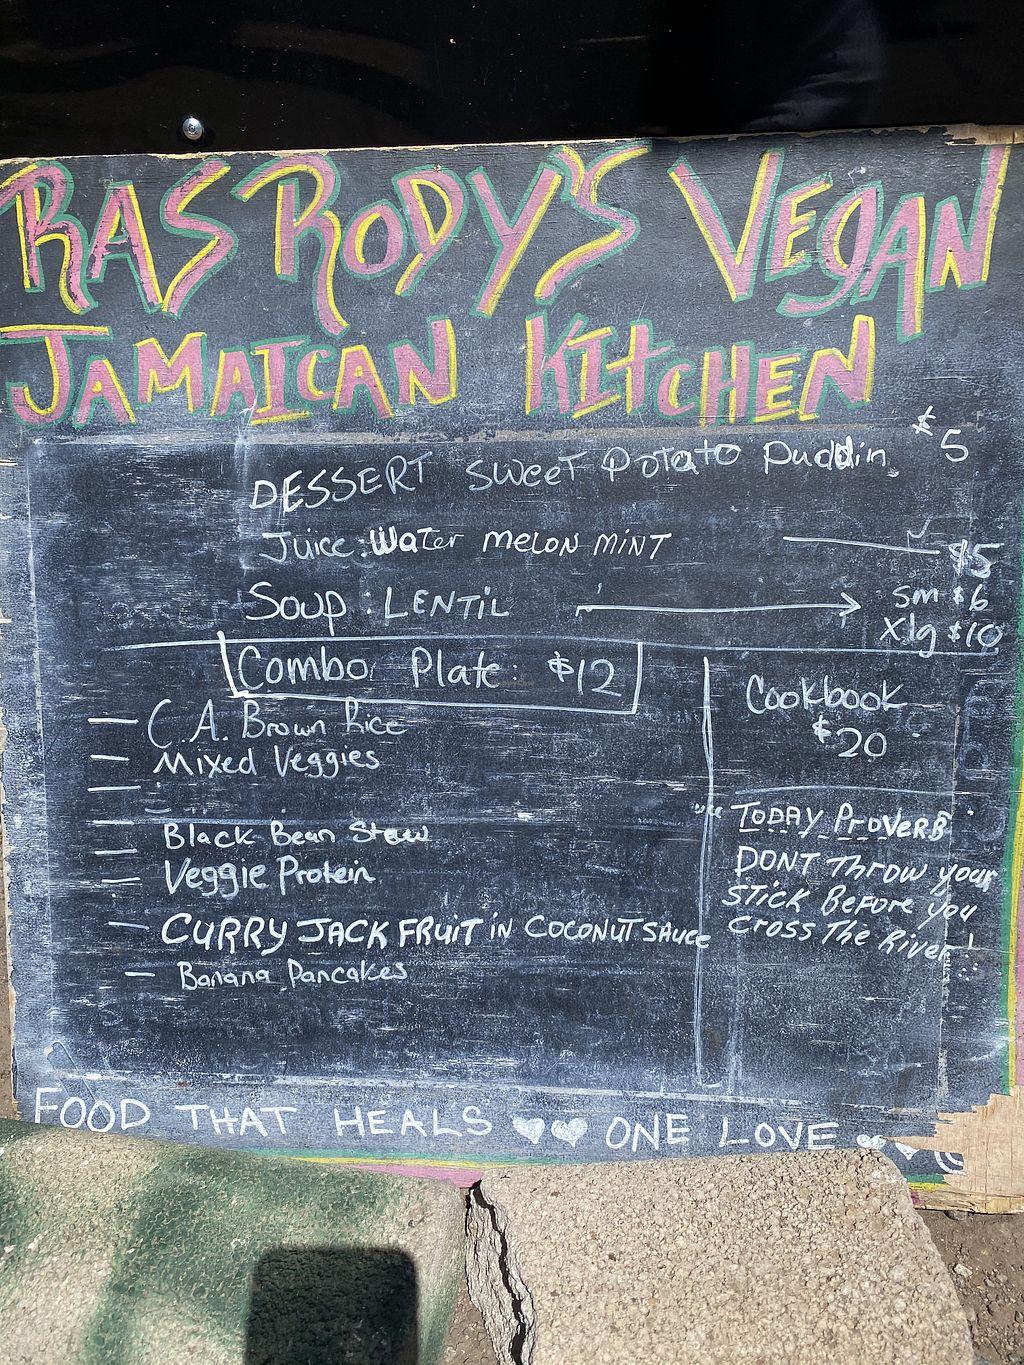 RAS RODY'S VEGAN
JAMAICAN KITCHEN
DESSERT SWEET POTATO Puddin $5
Juice: Water MELON MINT $5
Soup: LENTIL sm $6
Xlg $10
Combo Plate: $12
C.A. Brown Rice
Mixed Veggies
Black Bean Stew
Veggie Protein
CURRY JACK FRUIT IN COCONUT SAUCE
Banana Pancakes
Cookbook
$20
"TODAY PROVERB
DONT Throw your
STICK Before you
CROSS The River!
FOOD THAT HEALS ♡♡ ONE LOVE